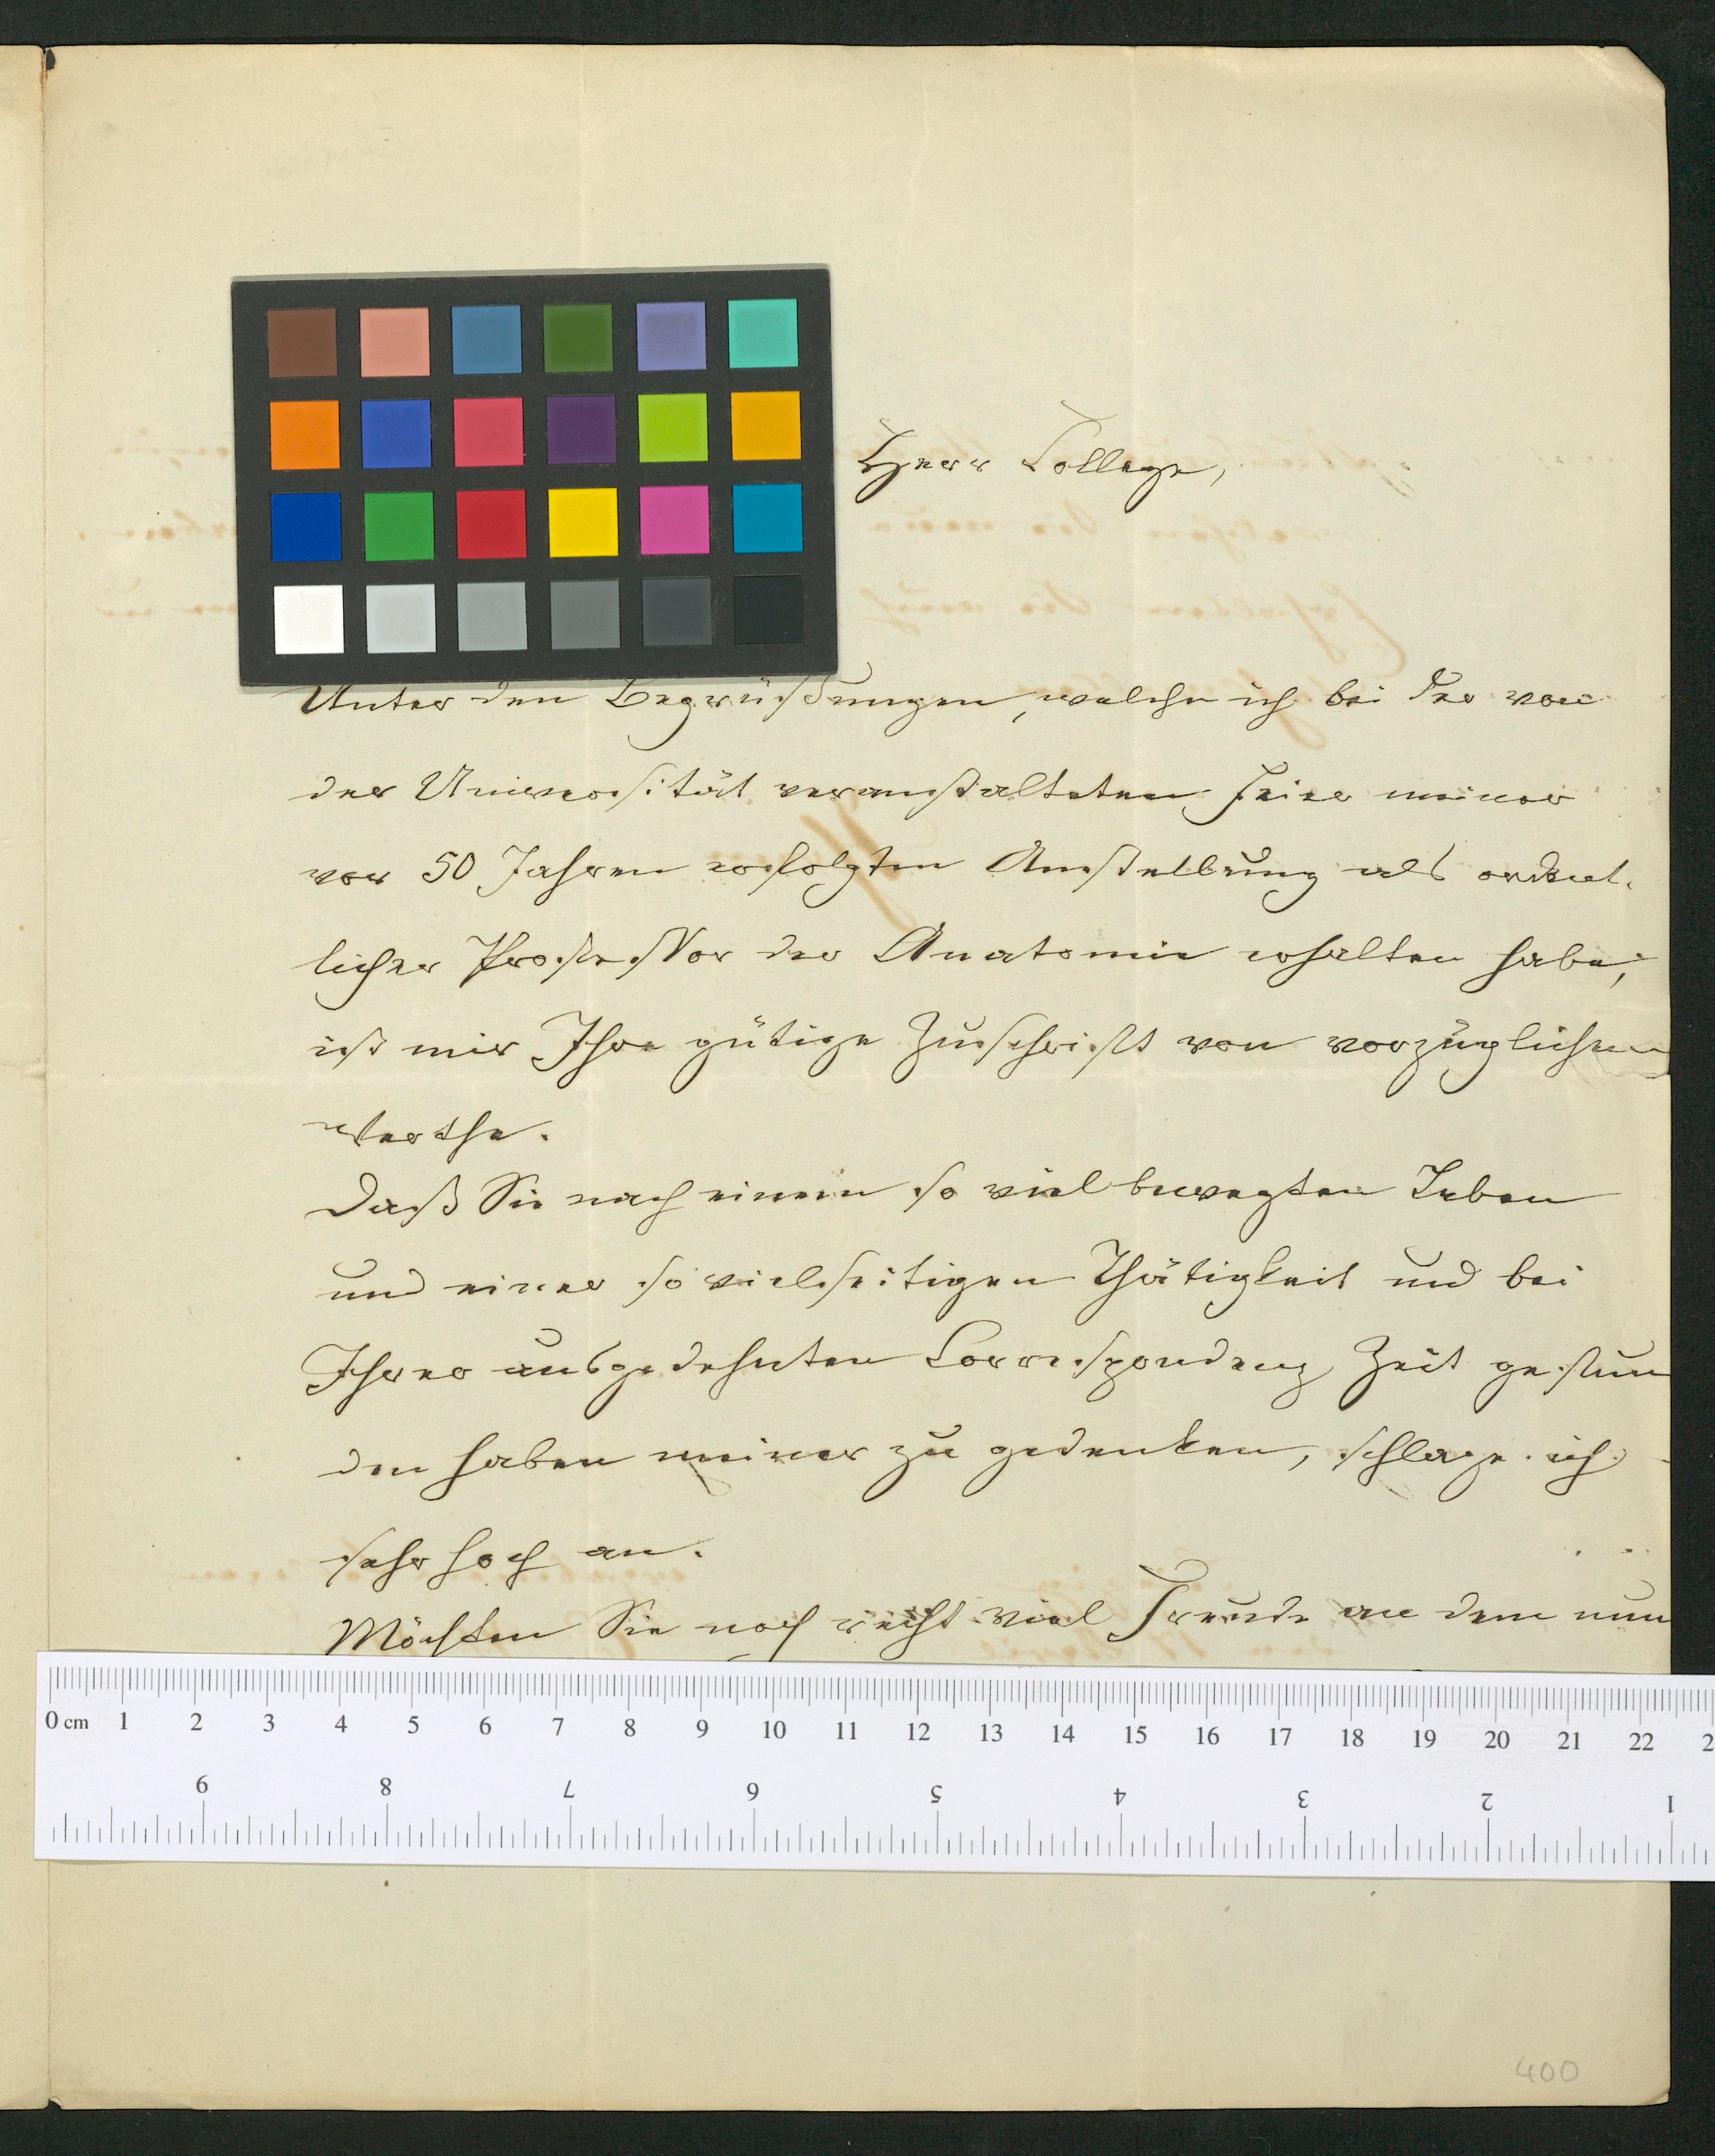 Herr College,
Unter den Begrüßungen, welche ich bei der von
der Universität veranstalteten Feier meiner
vor 50 Jahren erfolgten Anstellung als ordent-
licher Professor der Anatomie erhalten habe,
ist mir Ihre gütige Zuschrift von vorzüglichem
Werthe.
Daß Sie nach einem so viel bewegten Leben
und einer so vielseitigen Thätigkeit und bei
Ihrer ausgedehnten Correspondenz Zeit gefun
den haben meiner zu gedenken, schlage ich
sehr hoch an.
Möchten Sie noch recht viel Freude an dem nun
0 cm 1 2 3 4 5 6 7 8 9 10 11 12 13 14 15 16 17 18 19 20 21 22 2
9 8 7 6 5 4 3 2 1
400